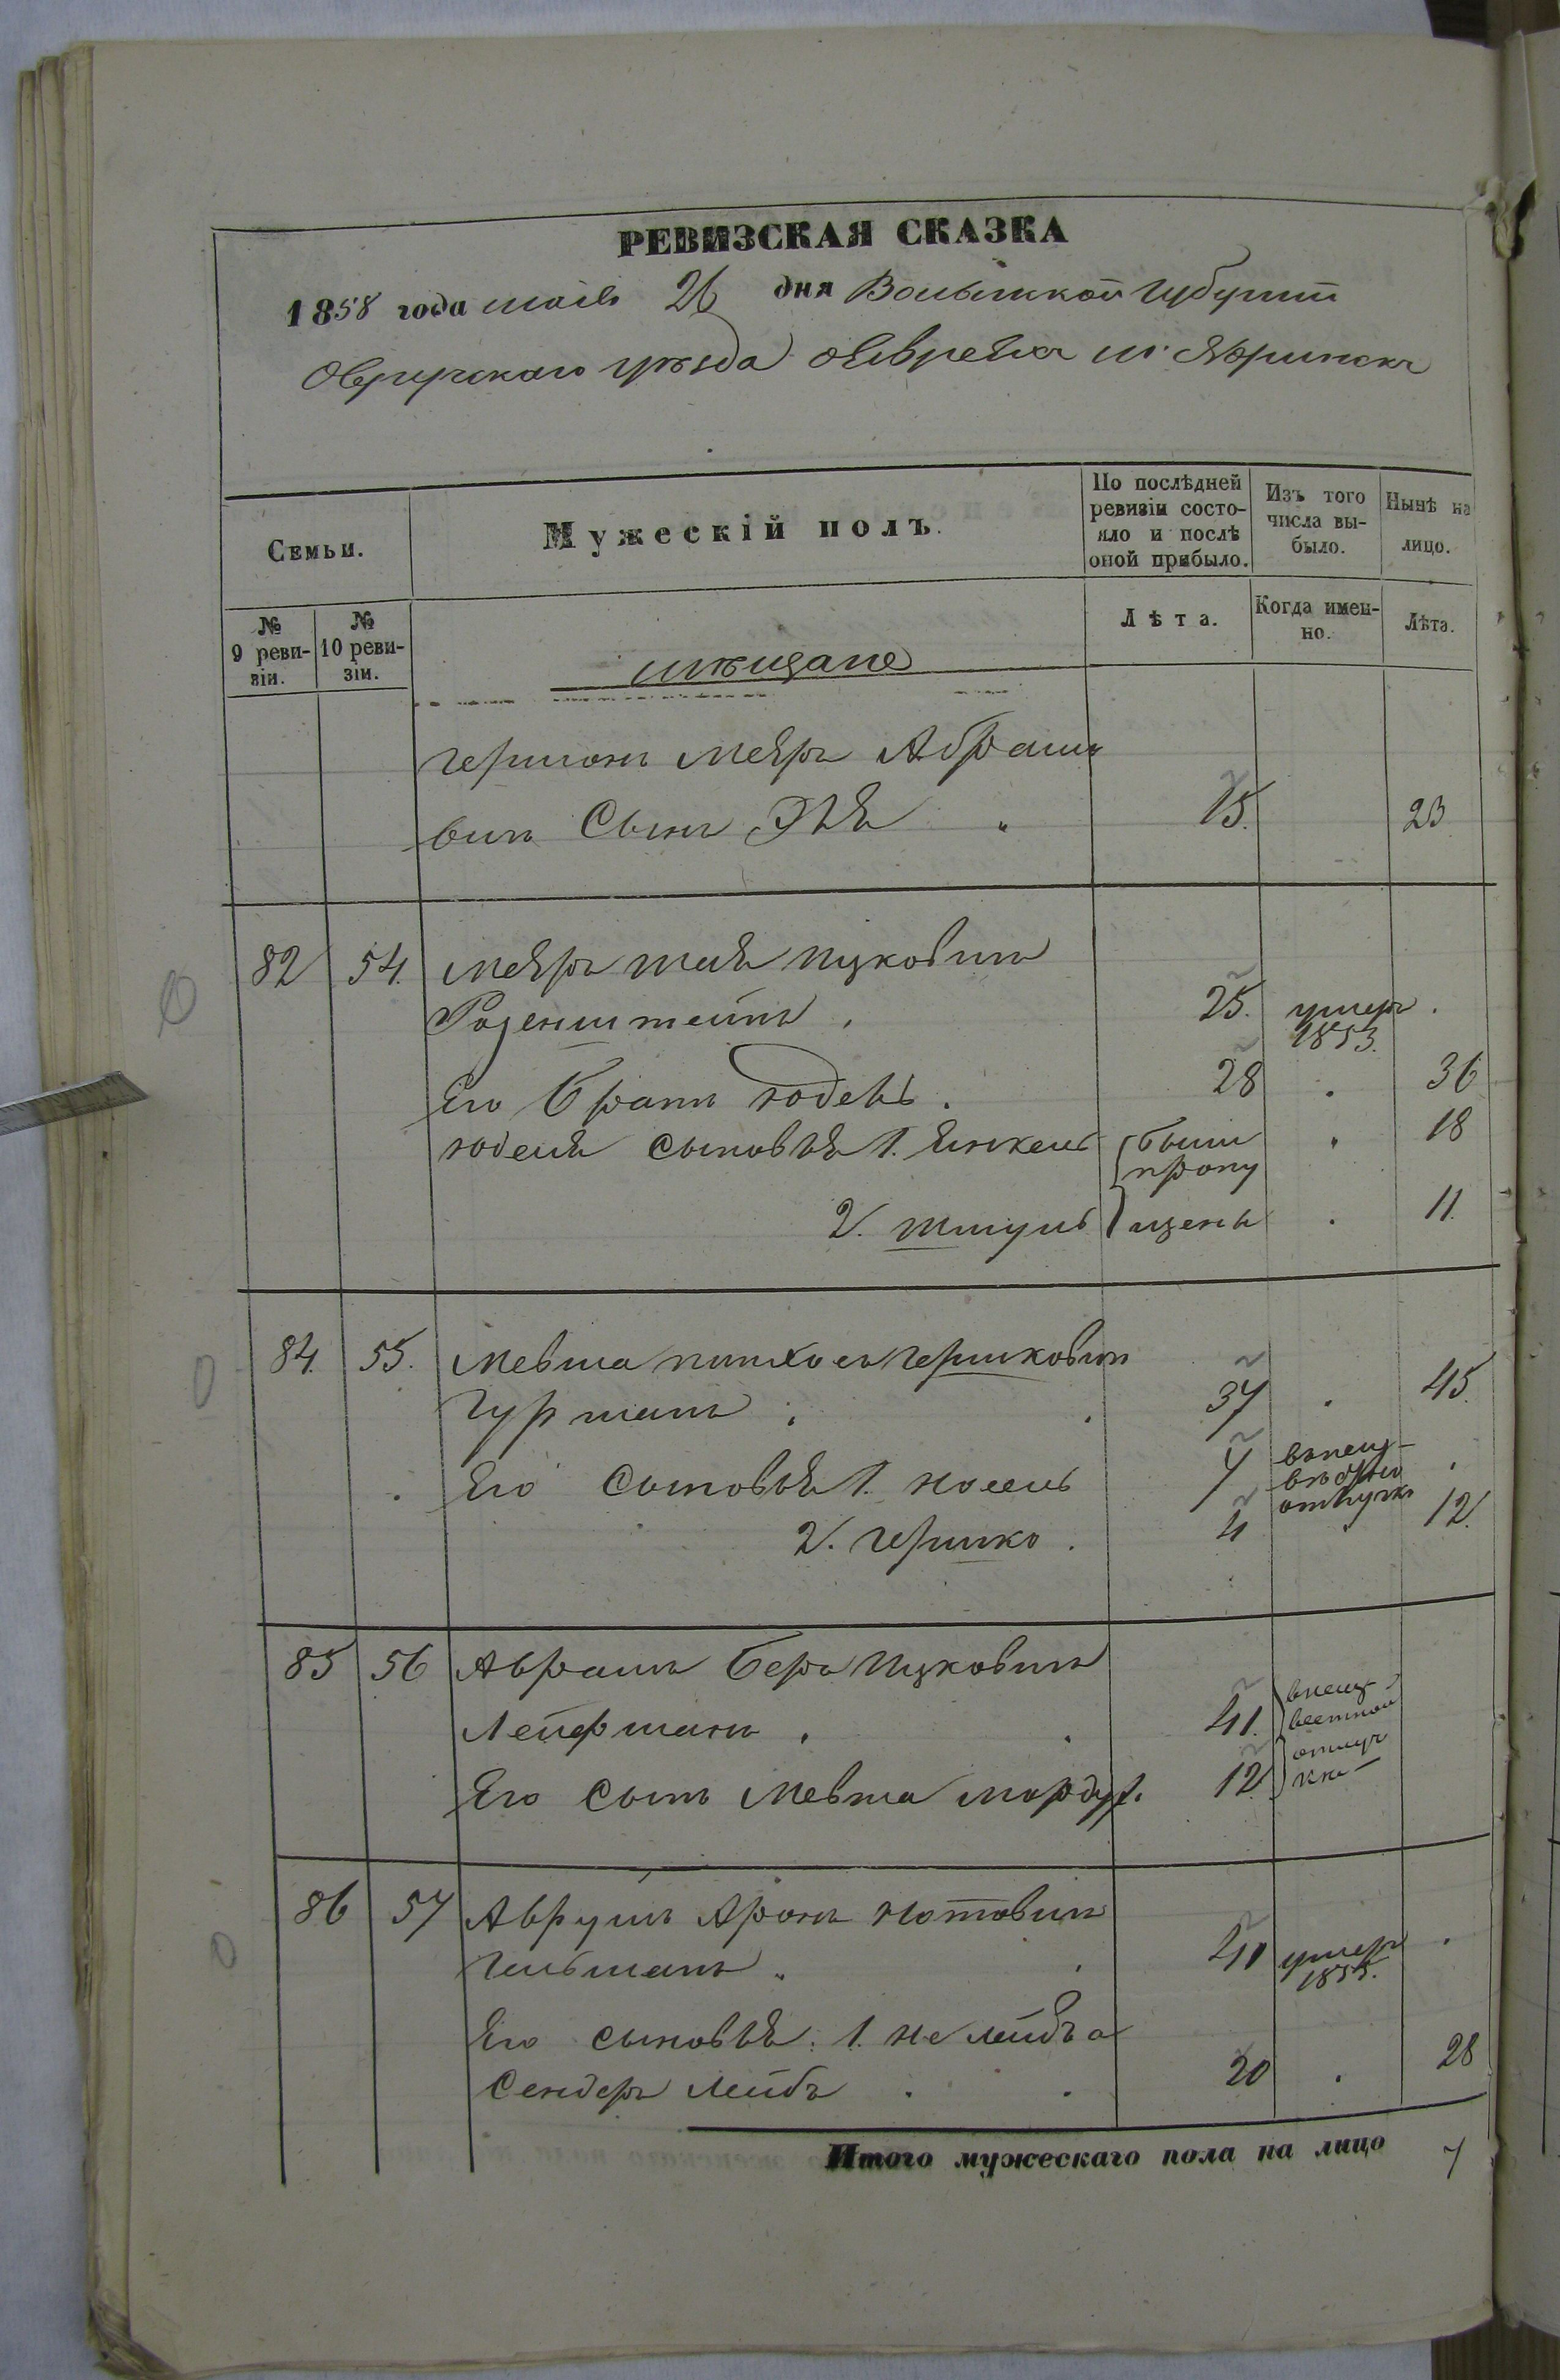 РЕВИЗСКАЯ СКАЗКА
1858 года мая 26 дня Волынской губернии
Овручскаго уѣзда о Евреяхъ м. Норинска
Семьи.
Мужескій полъ.
По послѣдней ревизіи состояло и послѣ оной прибыло.
Изъ того числа выбыло.
Нынѣ на лицо.
№ 9 ревизіи.
№ 10 ревизіи.
мѣщане
Лѣта.
Когда именно.
Лѣта.
Гершонъ Меяръ Абрамо
вичъ Сынъ 15. 23
82 54. Меяръ Ицковичъ
Розенштейнъ . 25. умеръ 1853. .
Его братъ Юдель . 28 . 36
Юделя сыновья 1. Янкель были пропу . 18
2. Шмуль щены . 11.
84. 55. Мевша Пинхосъ Гершковичъ
Гурманъ . 37 . 45.
Его сыновья 1. Носель 7 .
2. Гершко . 4 12.
85 56 Авраамъ Беръ Ицковичъ
Лейфманъ . 41.
Его сынъ Мевша Мордух. 12
86 57 Аврумъ Аронъ Нотовичъ
Гильманъ . 40 умеръ 1855. .
Его сыновья: 1. не Лейба
Сендеръ Лейбъ . 20 . 28
Итого мужескаго пола на лицо 7